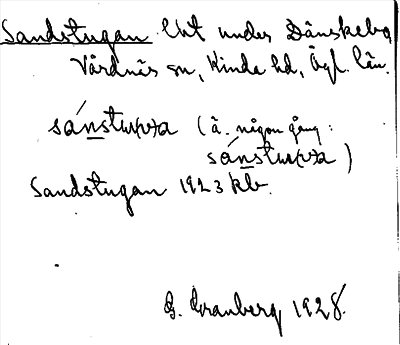 Sandstugan Utt under Dänskebo,
Vårdnäs sn, Kinda hd, Ögl. län.
sánstu(v)a (ä. någon gång:
sánstu(v)a)
Sandstugan 1923 kb.
G. Granberg 1928.